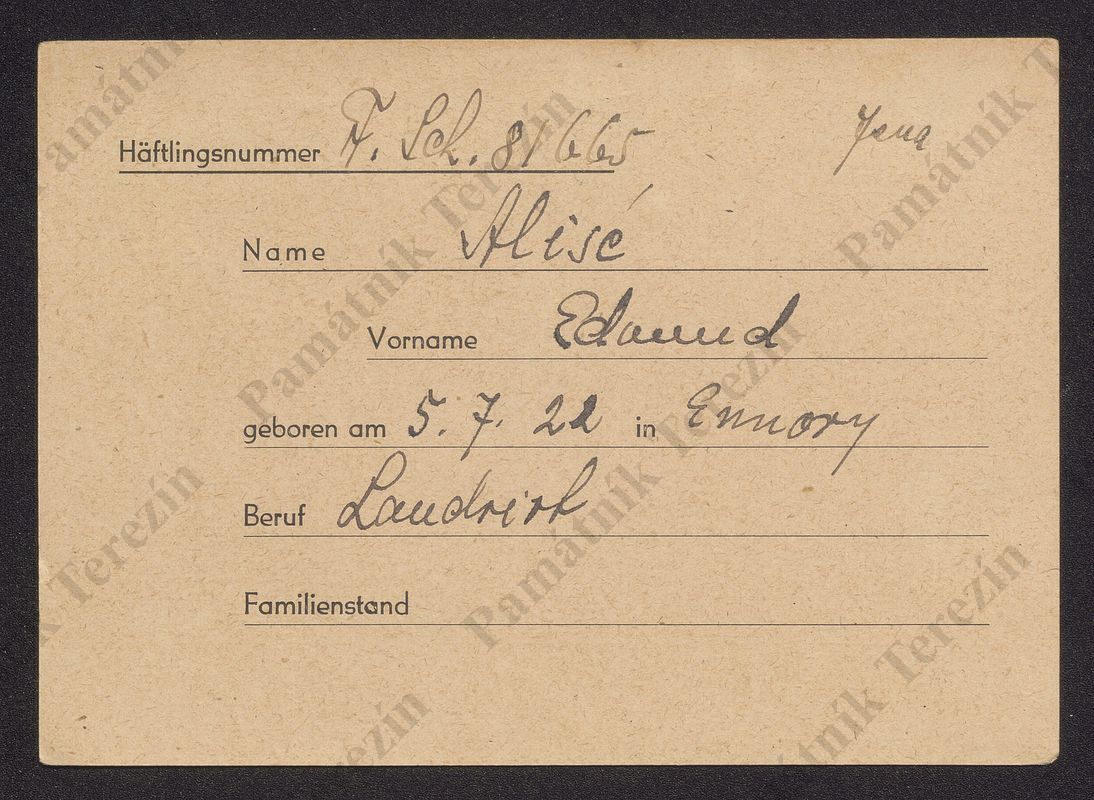 Häftlingsnummer F. Sch. 81665 Jena
Name Alisé
Vorname Edmund
geboren am 5. 7. 22 in Ennory
Beruf Landwirt
Familienstand
Památník Terezín